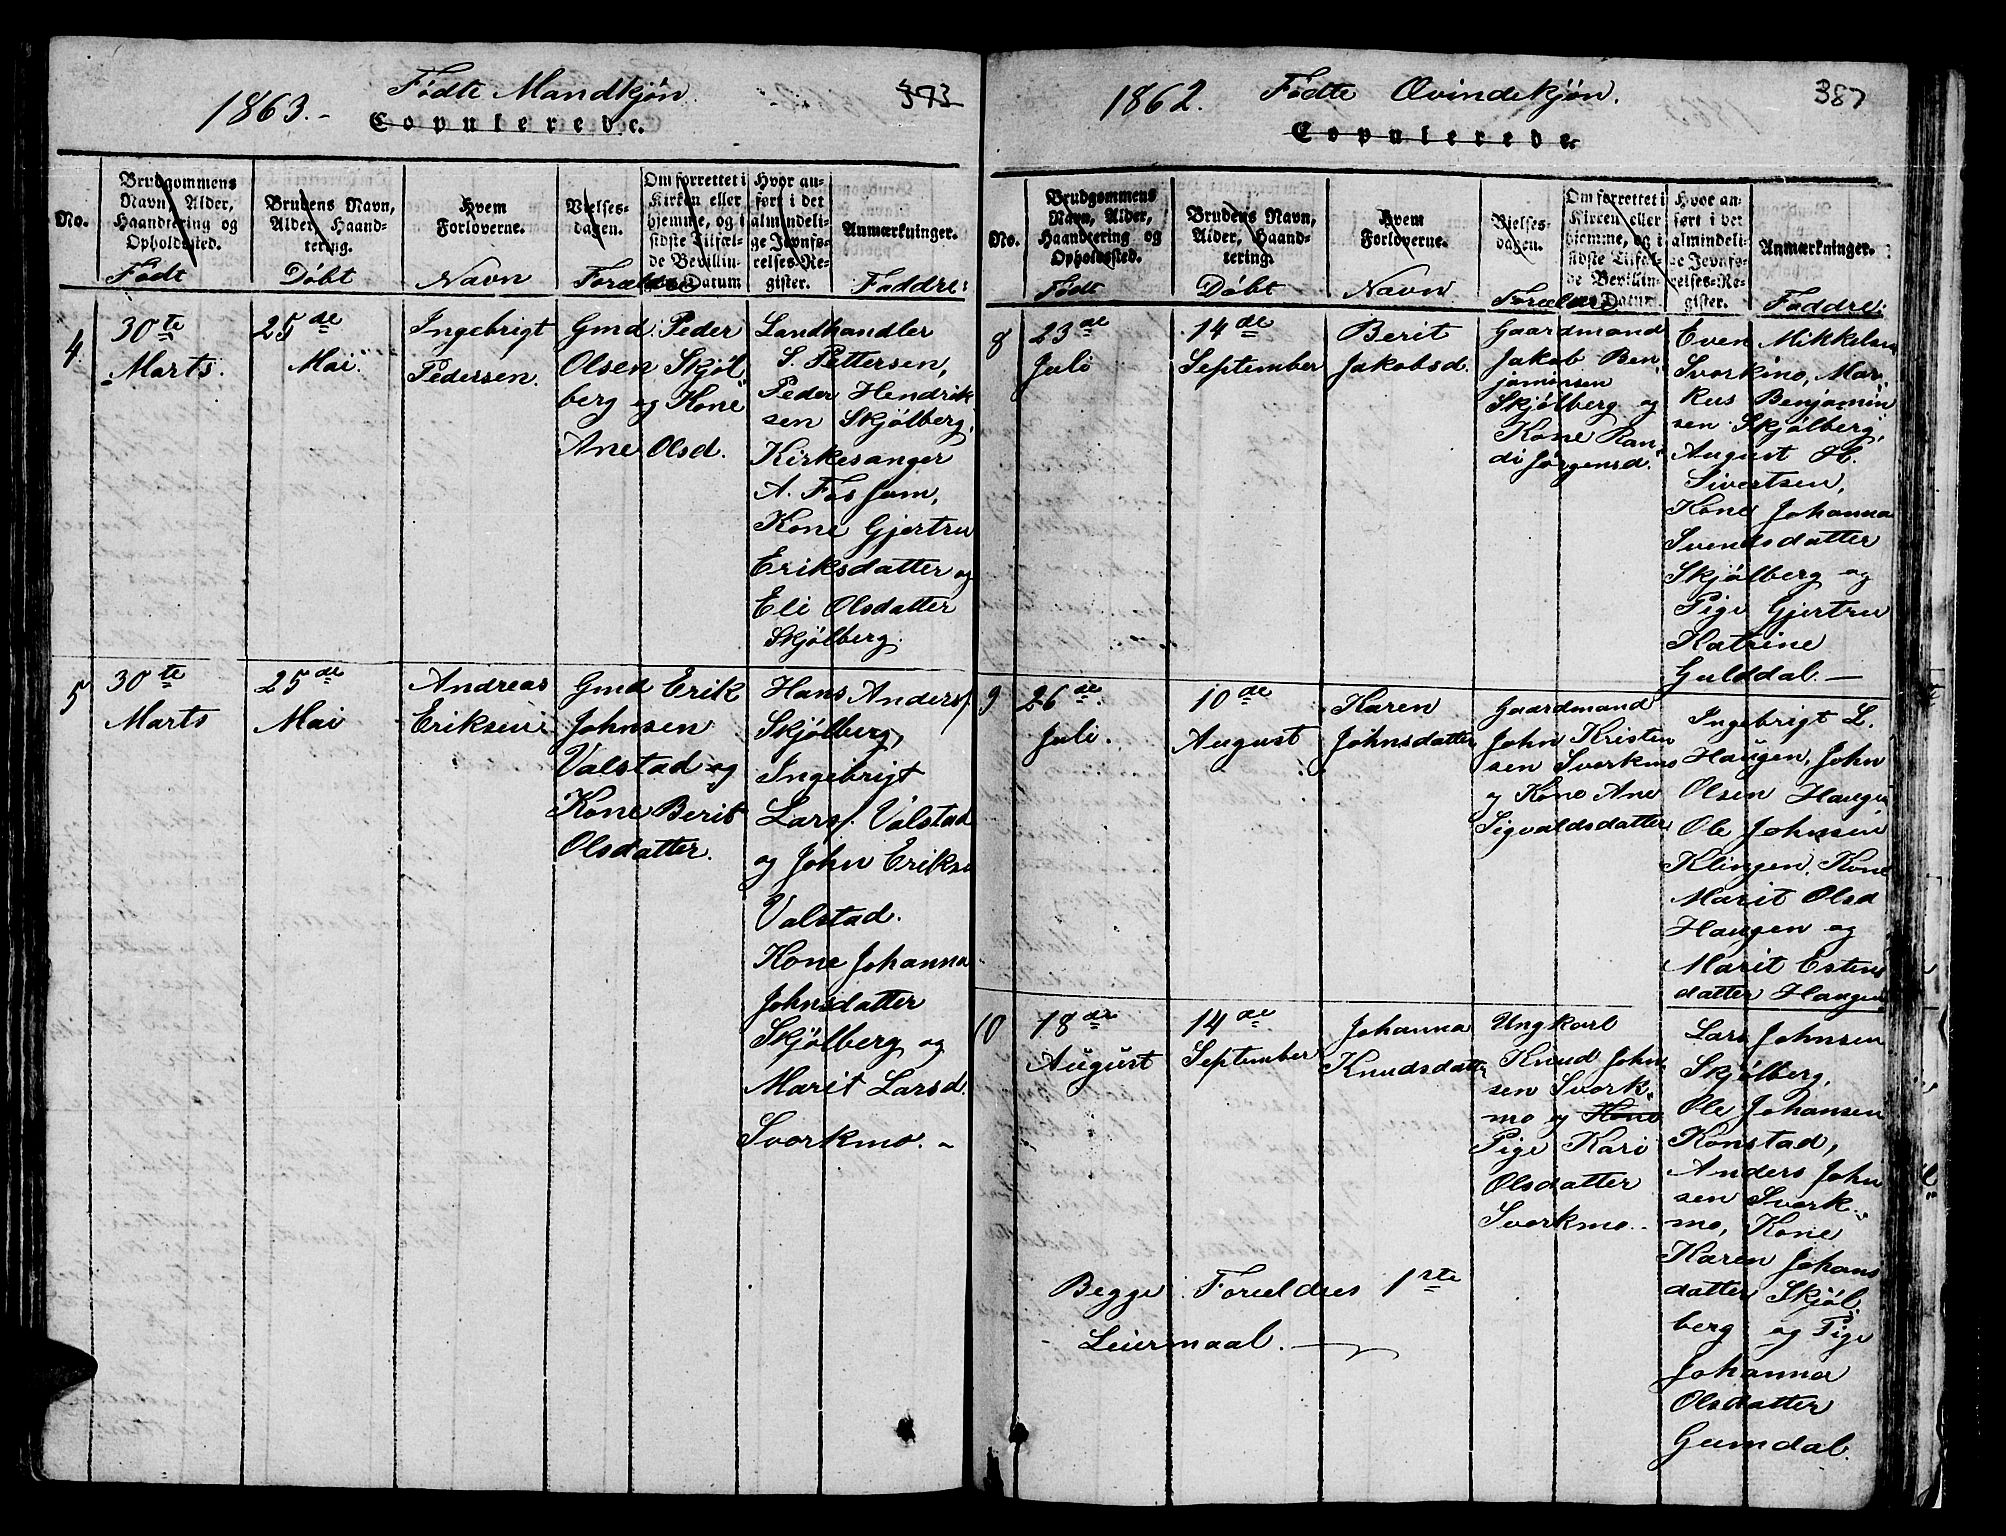 Fødte Mandkjøn.
373
1863.-
Copulerede.
No.
Brudgommens
Navn, Alder,
Haandtering og
Opholdssted.
Født
Brudens Navn,
Alder, Haand-
tering.
Døbt
Hvem
Forloverne.
Navn
Vielses-
dagen.
Forældre
Om forrettet i
Kirken eller
hjemme, og i
sidste Tilfæl-
de Bevillin-
gens Datum
Hvor an-
ført i det
almindeli-
ge Jevnfø-
relses-Re-
gister.
Anmærkninger.
Faddre:
4.
30te
Marts.
25de
Mai.
Ingebrigt
Pedersen.
Gmd. Peder
Olsen Skjøl
berg og Kone
Ane Olsd.
Landhandler
S. Pettersen,
Peder Hendrik-
sen Skjølberg,
Kirkesanger
A. Fosjum,
Kone Gjertru
Eriksdatter og
Eli Olsdatter
Skjølberg.
5
30te
Marts
25de
Mai
Andreas
Eriksen
Gmd Erik
Johnsen
Valstad og
Kone Berit
Olsdatter.
Hans Anders/.
Skjølberg,
Ingebrigt
Lars/. Valstad
og John Eriks
Valstad.
Kone Johanna
Johnsdatter
Skjølberg og
Marit Larsd.
Svorkmo. -
1862. Fødte Qvindekjøn.
387
Copulerede.
No.
Brudgommens
Navn, Alder,
Haandtering og
Opholdssted.
Født
Brudens Navn,
Alder, Haand-
tering.
Døbt
Hvem
Forloverne.
Navn
Vielses-
dagen.
Forældre
Om forrettet i
Kirken eller
hjemme, og i
sidste Tilfæl-
de Bevillin-
gens Datum
Hvor an-
ført i det
almindeli-
ge Jevnfø-
relses-Re-
gister.
Anmærkninger.
Faddre:
8
23de
Juli
14de
September
Berit
Jakobsd.
Gaardmand
Jakob Ben-
jaminsen
Skjølberg og
Kone Ran-
di Jørgensd.
Even Mikkelsen
Svorkmo, Mar-
kus Benjamin
sen Skjølberg,
August H.
Sivertsen,
Kone Johanna
Svendsdatter
Skjølberg og
Pige Gjertru
Katrine
Gulddal. -
9
26de
Juli.
10de
August
Karen
Johnsdatter
Gaardmand
John Kristen
sen Svorkmo
og Kone Ane
Sigvaldsdatter
Ingebrigt L.
Haugen, John
Olsen Haugen
Ole Johnsen
Klingen, Kone
Marit Olsd
Haugen og
Marit Estens
datter Haugen
10
18de
August
14de
September
Johanna
Knudsdatter
Ungkarl
Knud John
sen Svork-
mo og Kone
Pige Kari
Olsdatter
Svorkmo. -
Lars Johnsen
Skjølberg,
Ole Johansen
Konstad,
Anders John
sen Svork-
mo, Kone
Karen Johans
datter Skjøl
berg og Pige
Johanna
Olsdatter
Gumdal.
Begge Foreldres 1ste
Leiermaal. -